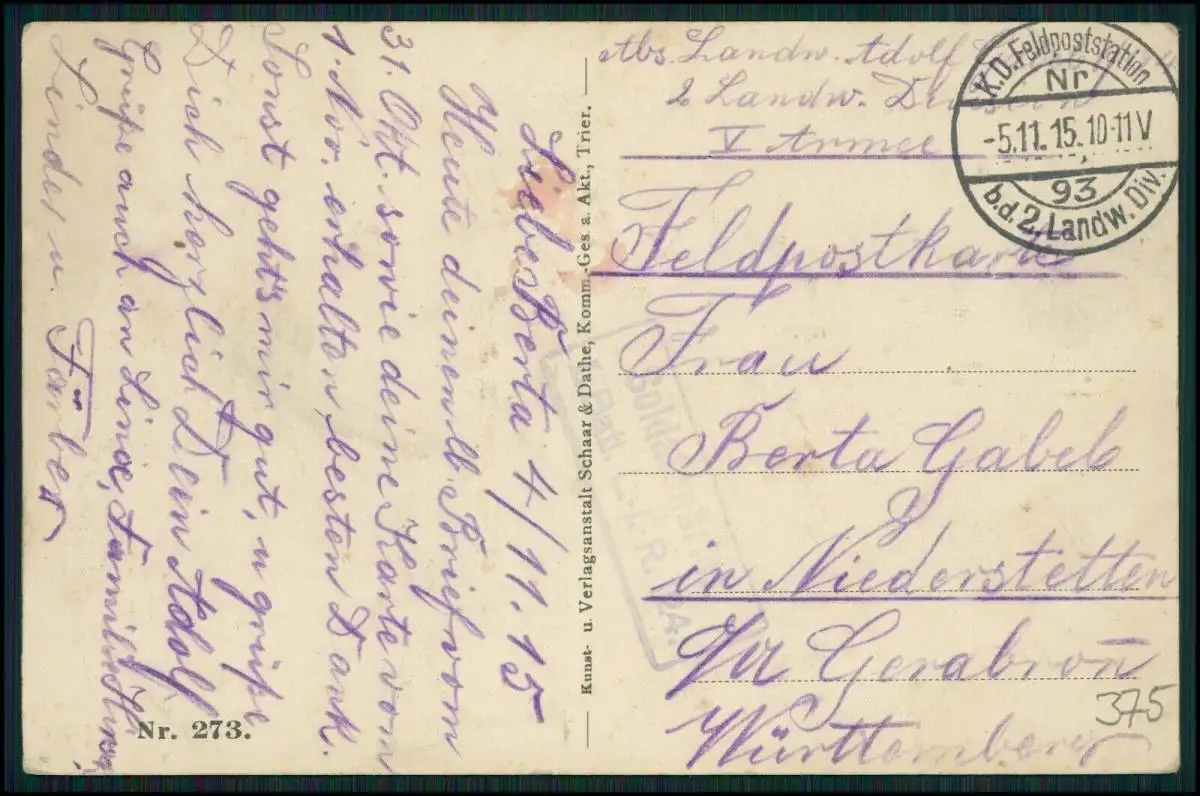 Liebe Berta 4/11.15
Heute deinen lb. Brief vom
31. Okt. sowie deine Karte vom
1. Nov. erhalten, besten Dank.
Sonst geht's mir gut, u grüße
Dich herzlich Dein Adolf
Grüße auch an Line, Familie
Linder u. Färber
Nr. 273.
Kunst- u. Verlagsanstalt Schaar & Dathe, Komm.-Ges. a. Akt., Trier.
Abs. Landw. Adolf
2 Landw. Division
V Armee
S.K.D. Feldpoststation
Nr
-5.11.15.10-11V
93
b.d. 2. Landw. Div.
Feldpostkarte
Frau
Berta Gabel
in Niederstetten
O/A Gerabronn
Württemberg
375